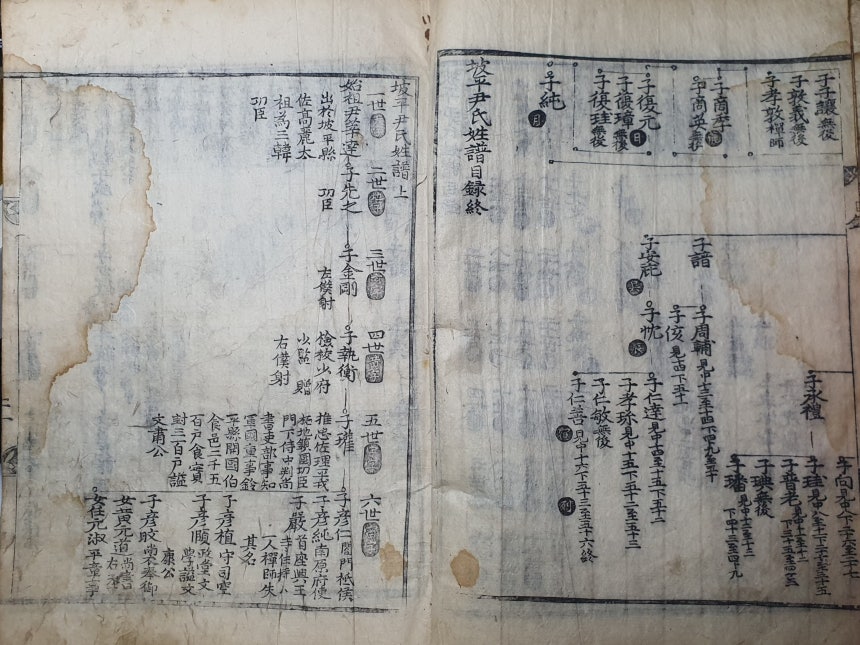 子子讓無後
子敦義無後
子孝敦禪師
子商季
子商英無後
子復元
子復璋無後
子復珪無後
子純
子永禮
子向見中八下二十六至二十七
子珪見中八至十下二十七至三十五
子晋老見中十一至十二
下三十五至四十三
子琠無後
子璠見中十二至十三
下四十三至四十九
子諳
子周輔見中十三至十四下四十九至五十
子侅見十四下五十一
子安庇
子忱
子仁達見中十四至十五下五十二
子孝珎見中十五下五十二至五十三
子仁敏無後
子仁善見中十六下五十三至五十六終
坡平尹氏姓譜目録終
坡平尹氏姓譜上
一世
始祖尹莘達
出於坡平縣
佐高麗太
祖為三韓
功臣
二世
子先之
功臣
三世
子金剛
左僕射
四世
子執衡
檢校少府
少監贈
右僕射
五世
子瓘
推忠佐理平戎
拓地鎮國功臣
門下侍中判尚
書吏部事知
軍國重事鈴
平縣開國伯
食邑二千五
百戸食實
封三百戸諡
文肅公
六世
子彦仁閤門祗侯
子彦純南原府使
子嚴首座興王
寺住持
人禪師失
其名
子彦植守司空
子彦頤政堂文
學諡文
康公
子彦旼尚衣奉御
女黄元道尚書
右
女任元淑平章事